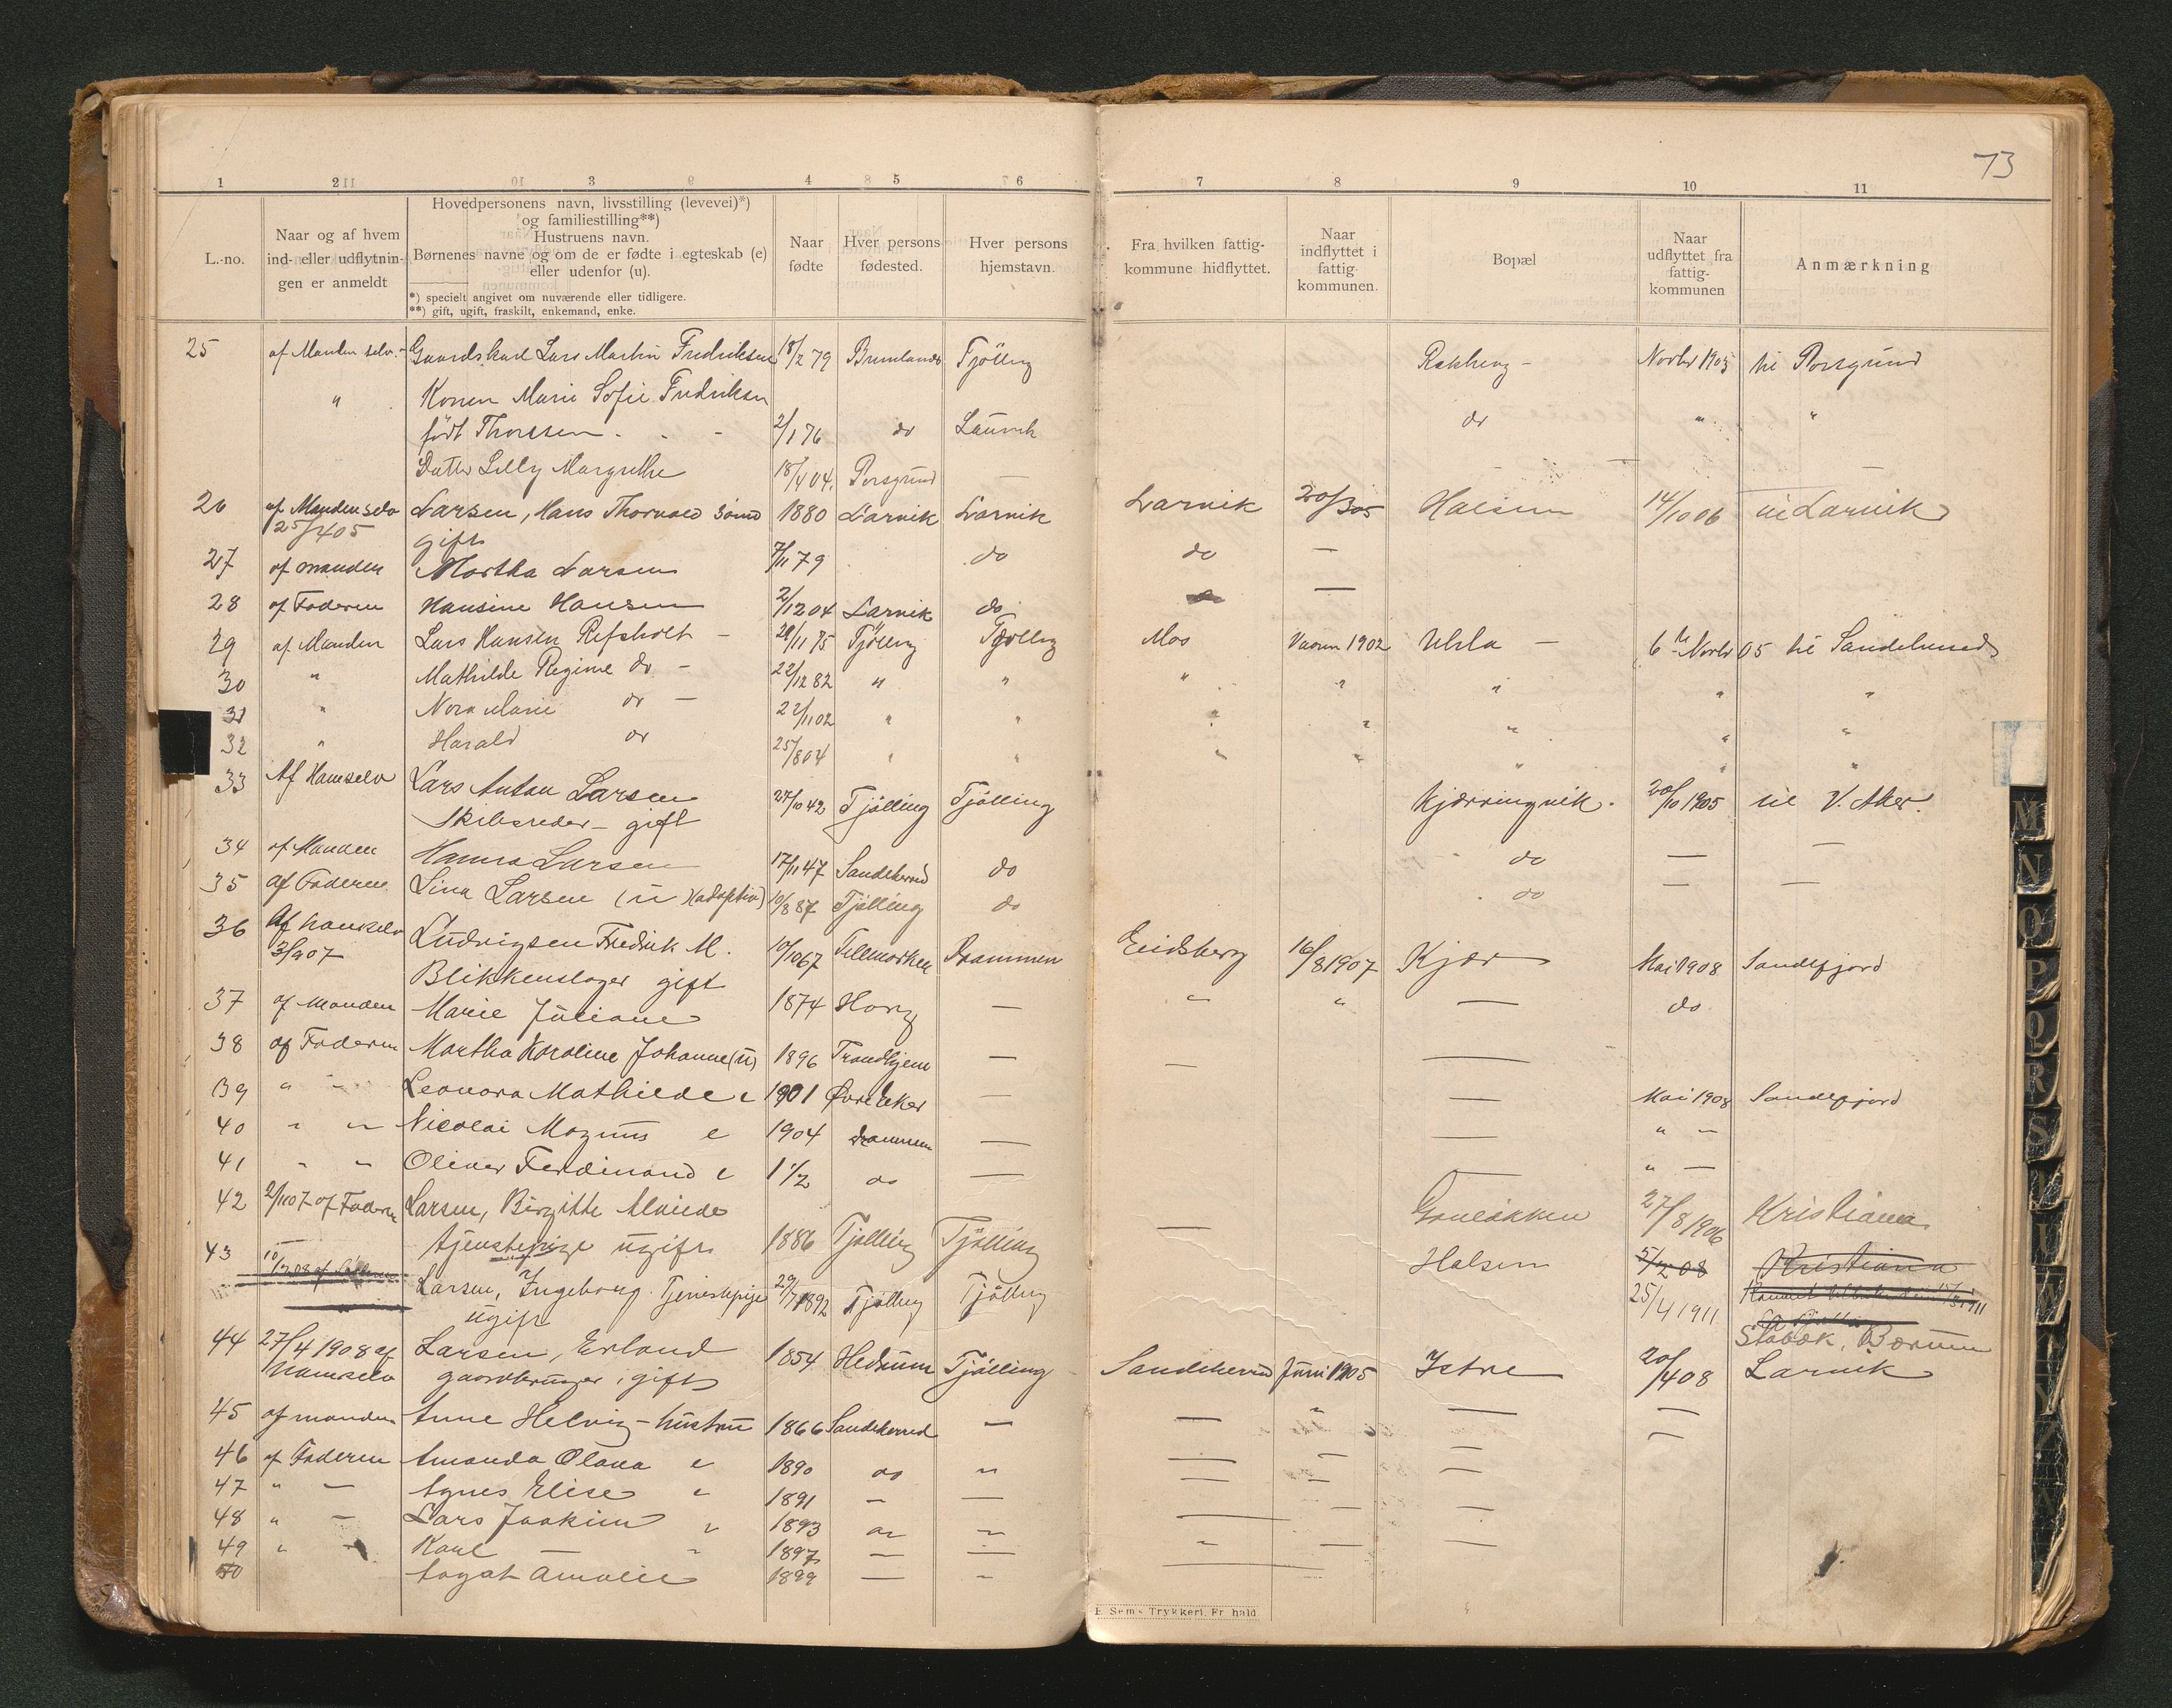 73
1 2 3 4 5 6 7 8 9 10 11
L.-no.
Naar og af hvem
ind- eller udflytnin-
gen er anmeldt
Hovedpersonens navn, livsstilling (levevei)*)
og familiestilling**)
Hustruens navn.
Børnenes navne og om de er fødte i egteskab (e)
eller udenfor (u).
*) specielt angivet om nuværende eller tidligere.
**) gift, ugift, fraskilt, enkemand, enke.
Naar
fødte
Hver persons
fødested.
Hver persons
hjemstavn.
Fra hvilken fattig-
kommune hidflyttet.
Naar
indflyttet i
fattig-
kommunen.
Bopæl
Naar
udflyttet fra
fattig-
kommunen
Anmærkning
25 af Manden selv. Gaardskarl Lars Martin Fredriksen 18/2 79 Brunlanes Tjölling Rekkevig - Novbr 1905 til Porsgrund
" Konen Marie Sofie Fredriksen
født Thorssen - 2/1 76 do Laurvik do " "
Datter Lilly Margrethe 18/4 04. Porsgrund —
26 af Manden selv Larsen, Hans Thorvald 1880 Larvik Larvik Larvik 20/3 05 Halsen 14/10 06 til Larvik
25/4 05 gift
27 af manden Martha Larsen 7/11 79 do do —
28 af Faderen Hansine Hansen 2/12 04 Larvik do —
29 af Manden Lars Hansen Refsholt - 28/11 75 Tjölling Tjölling Mos Vaaren 1902 Ula — 6te Novbr 05 til Sandeherred
30 " Mathilde Regine do - 22/12 82 " " " " " " "
31 " Nora Marie do - 22/11 02 " " " " " " "
32 " Harald do 25/8 04 " " " " " " "
33 Af Ham selv Lars Anton Larsen 27/10 42 Tjölling Tjölling Kjærringvik. 20/10 1905 til V. Aker.
Skibsreder - gift
34 af Manden Hanna Larsen 17/11 47 Sandeherred do do — —
35 af Faderen Lina Larsen (u) (adoptiv) 10/8 87 Tjölling do do — —
36 Af ham selv Ludvigsen Fredrik M. 10/10 67 Tellemarken Drammen Eidsberg 16/8 1907 Kjær Mai 1908 Sandefjord
3/9 07 Blikkenslager gift
37 af Manden Marie Juliane 1874 Horg — " " — do
38 af Faderen Martha Karoline Johanne (u) 1896 Trondhjem — — —
39 " - Leonora Mathilde e 1901 Øvre Eker — — Mai 1908 Sandefjord
40 " " Nicolai Magnus e 1904 Drammen — — " -
41 " " Oliver Ferdinand e 1 1/2 do — — " —
42 2/11 07 af Faderen Larsen, Birgitte Alvilde Grønløkken 27/8 1906 Kristiania
tjenstepige ugift 1886 Tjølling Tjølling —
43 10/2 08 af Larsen, Ingeborg. Tjenestepige 29/7 1892 Tjølling Tjølling Halsen 5/2 08 Kristiania
ugift 25/4 1911 Stabæk, Bærum
44 27/4 1908 af Larsen, Erland 1854 Hedrum Tjølling Sandeherred Juni 1905 Istre 20/4 08 Larvik
ham selv gaardbruger, gift
45 af manden Anne Helvig - hustru 1866 Sandeherred — — " — —
46 af Faderen Amanda Olava e 1890 do " — — — —
47 " — Agnes Elise e 1891 — — — — —
48 " — Lars Joakim e 1893 do " — — —
49 " Karl — " 1897 — — " — —
50 Aagot Amalie 1899 — " —
E. Sems Trykkeri, Fr.hald.
M
N
O
P
Q
R
S